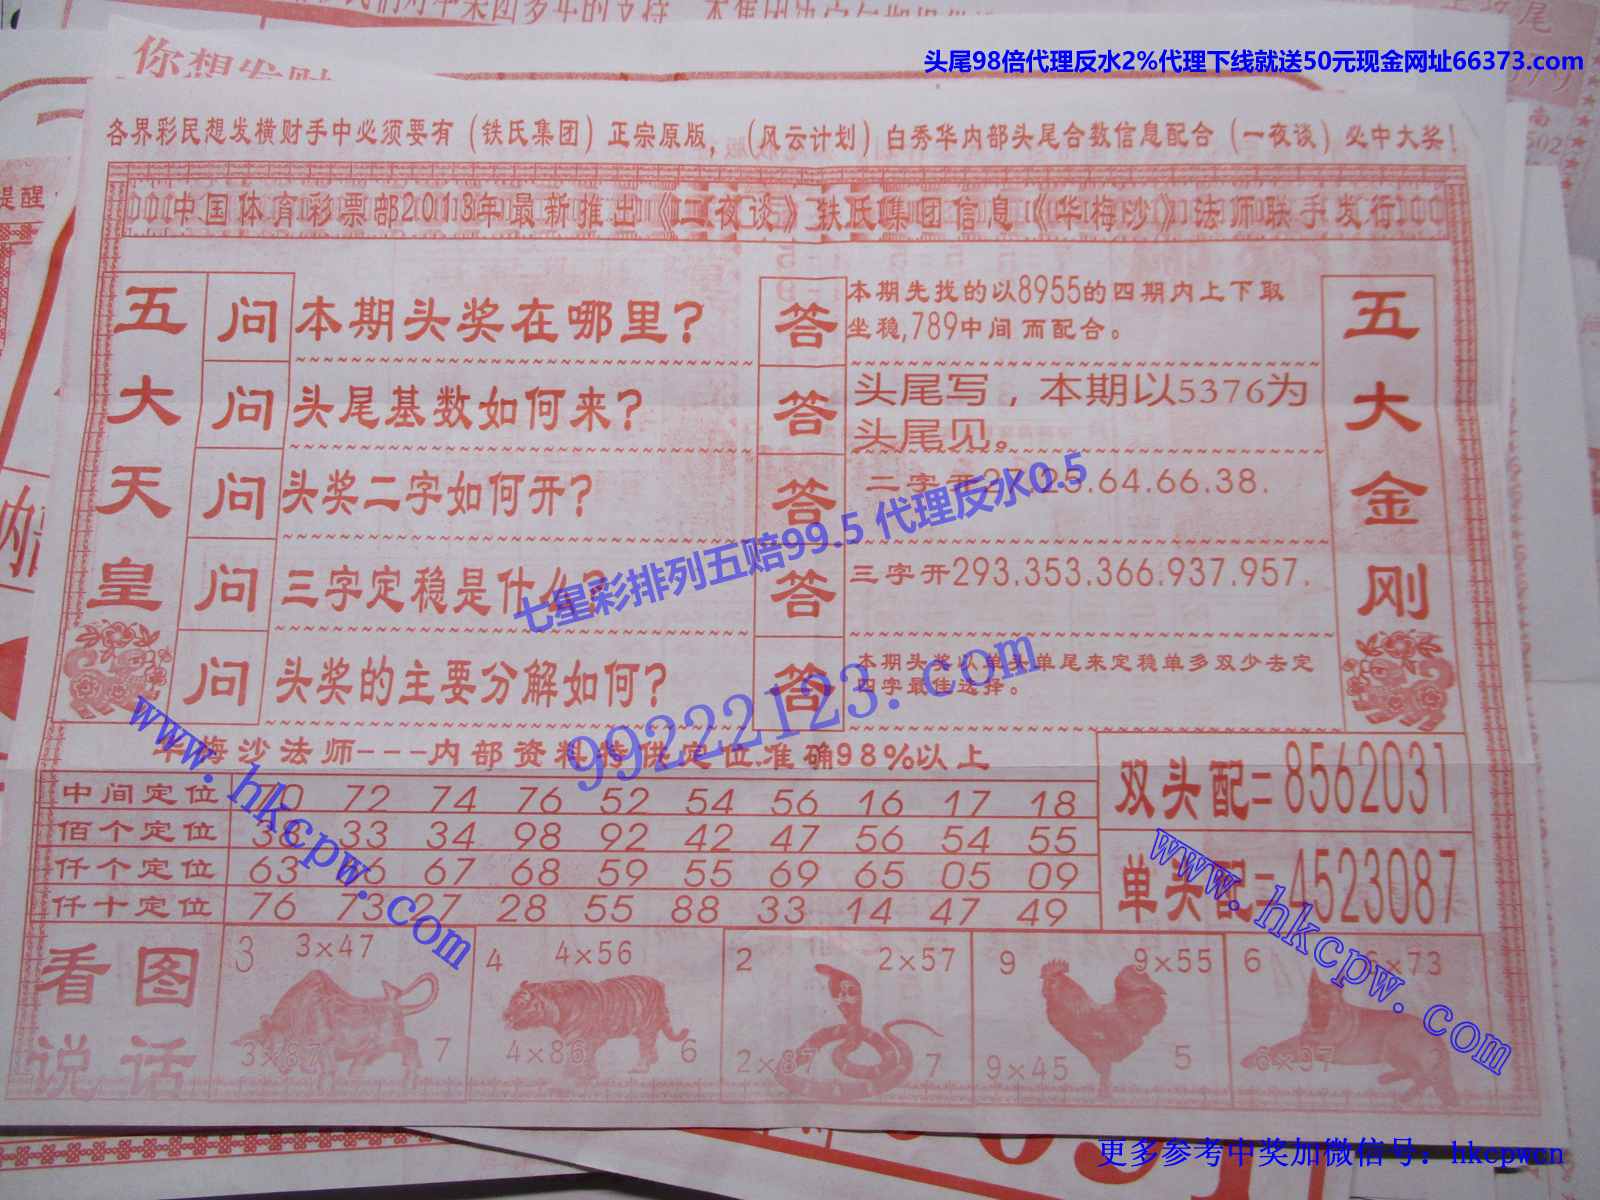 头尾98倍代理反水2%代理下线就送50元现金网址66373.com
你想发财
各界彩民想发横财手中必须要有（铁氏集团）正宗原版，（风云计划）白秀华内部头尾合数信息配合（一夜谈）必中大奖！
中国体育彩票部2013年最新推出《二夜谈》铁氏集团信息《华梅沙》法师联手发行
五大天皇
问 本期头奖在哪里？
答 本期先找的以8955的四期内上下取
坐稳,789中间而配合。
问 头尾基数如何来？
答 头尾写，本期以5376为
头尾见。
问 头奖二字如何开？
答 二字开27.25.64.66.38.
问 三字定稳是什么？
答 三字开293.353.366.937.957.
问 头奖的主要分解如何？
答 本期头奖以单头单尾来定稳单多双少去定
四字最佳选择。
五大金刚
七星彩排列五赔99.5 代理反水0.5
99222123.com
www.hkcpw.com
华梅沙法师---内部资料特供定位.准确98%以上
中间定位 70 72 74 76 52 54 56 16 17 18
佰个定位 38 33 34 98 92 42 47 56 54 55
仟个定位 63 66 67 68 59 55 69 65 05 09
仟十定位 76 73 27 28 55 88 33 14 47 49
双头配=8562031
单头配=4523087
www.hkcpw.com
看图
说话
3 3×47
3×67 7
4 4×56
4×86 6
2 2×57
2×87 7
9 9×55
9×45 5
6 6×73
6×37
更多参考中奖加微信号：hkcpwcn